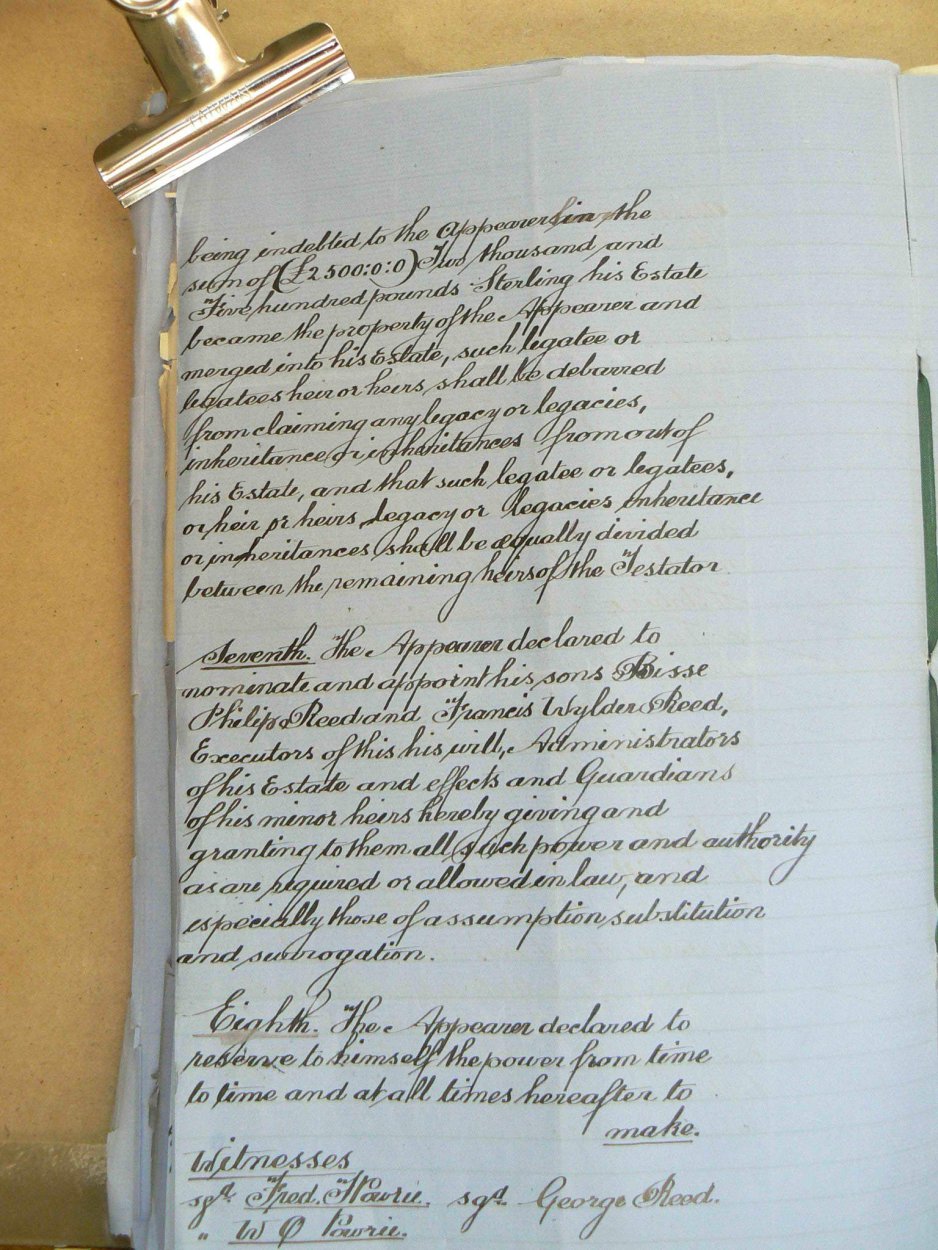 being indebted to the Appearer in the
sum of (£2500:0:0) Two thousand and
Five hundred pounds Sterling his Estate
became the property of the Appearer and
merged into his Estate, such legatee or
legatees heir or heirs shall be debarred
from claiming any legacy or legacies,
inheritance or inheritances from out of
his Estate, and that such legatee or legatees,
or heir or heirs legacy or legacies inheritance
or inheritances shall be equally divided
between the remaining heirs of the Testator
Seventh. The Appearer declared to
nominate and appoint his sons Bisse
Philip Reed and Francis Wylder Reed,
Executors of this his will, Administrators
of his Estate and effects and Guardians
of his minor heirs hereby giving and
granting to them all such power and authority
as are required or allowed in law, and
especially those of assumption substitution
and surrogation.
Eighth. The Appearer declared to
reserve to himself the power from time
to time and at all times hereafter to
make.
Witnesses
sgd. Fred. sgd. George Reed.
" W O Powrie.